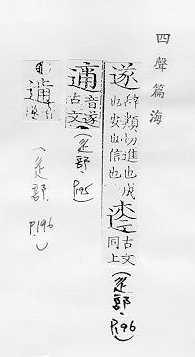 四聲篇海
遂 辭類切進也成
也安也信也
古文
同上
(辵部, P.196)
音遂
古文
(辵部, P.195)
(辵部, P.196)